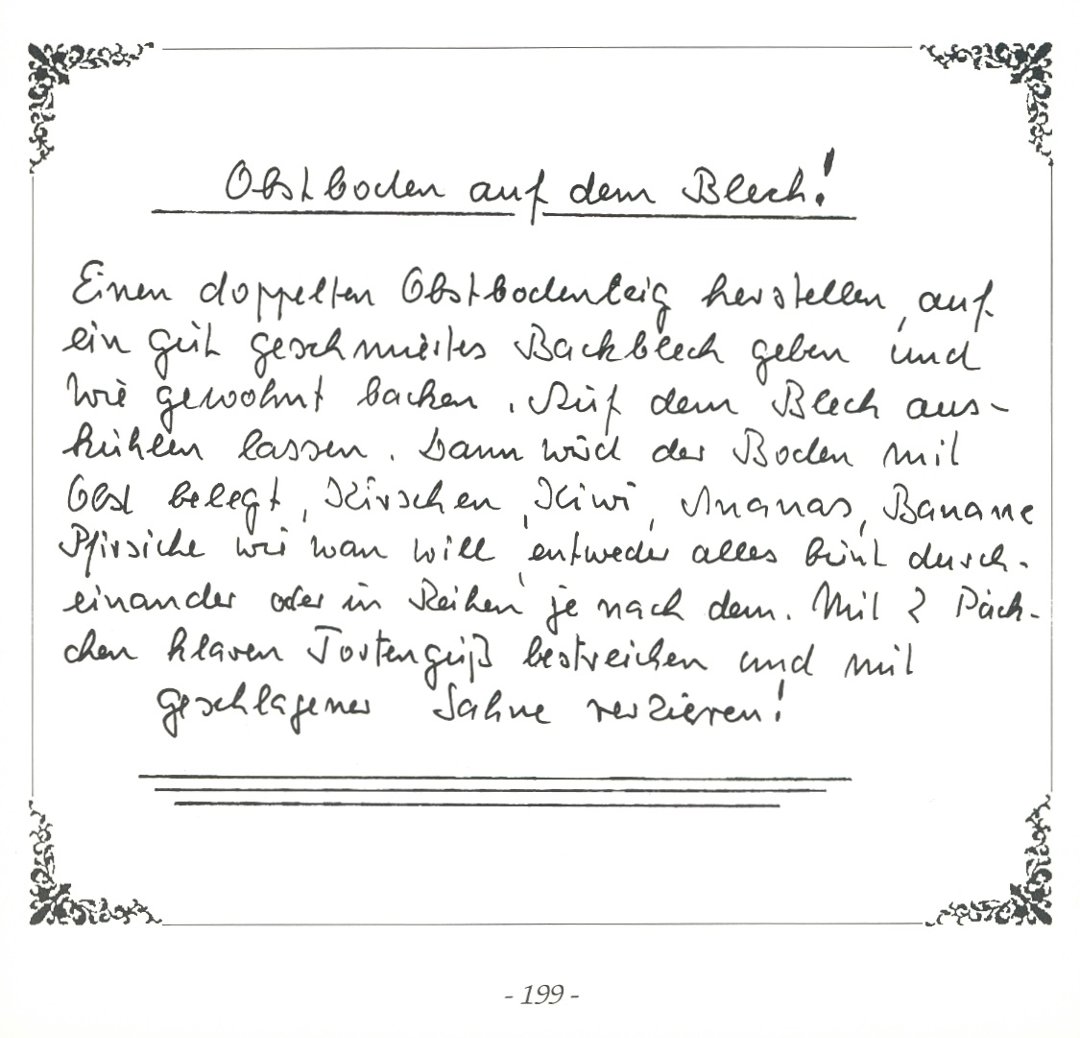 Obstboden auf dem Blech!
Einen doppelten Obstbodenteig herstellen, auf
ein gut geschmiertes Backblech geben und
wie gewohnt backen. Auf dem Blech aus-
kühlen lassen. Dann wird der Boden mit
Obst belegt, Kirschen, Kiwi, Ananas, Banane
Pfirsiche wie man will, entweder alles bunt durch-
einander oder in Reihen je nach dem. Mit 2 Päck-
chen klaren Tortenguß bestreichen und mit
geschlagener Sahne verzieren!
- 199 -